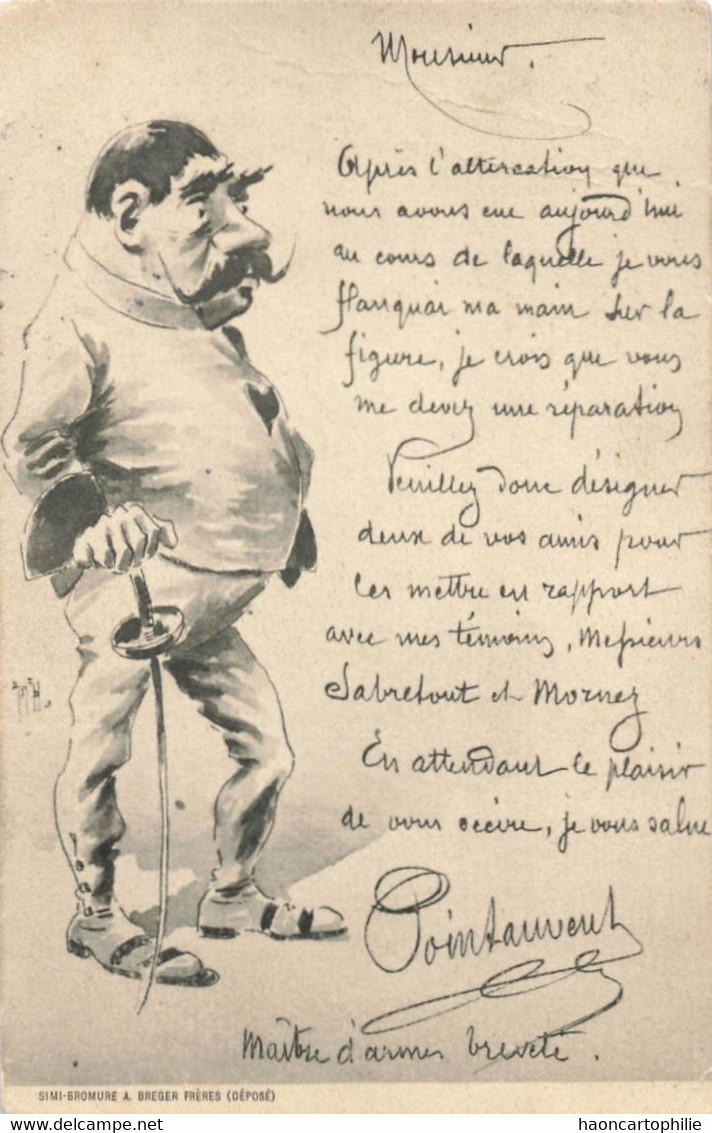 Monsieur.
Après l'altercation que
nous avons eue aujourd'hui
au cours de laquelle je vous
flanquai ma main sur la
figure, je crois que vous
me devez une réparation
Veuillez donc désigner
deux de vos amis pour
les mettre en rapport
avec mes témoins, Messieurs
Sabretout et Mornez
En attendant le plaisir
de vous occire, je vous salue
Pointauvent
Maître d'armes breveté.
SIMI-BROMURE A. BREGER FRÈRES (DÉPOSÉ)
haoncartophilie